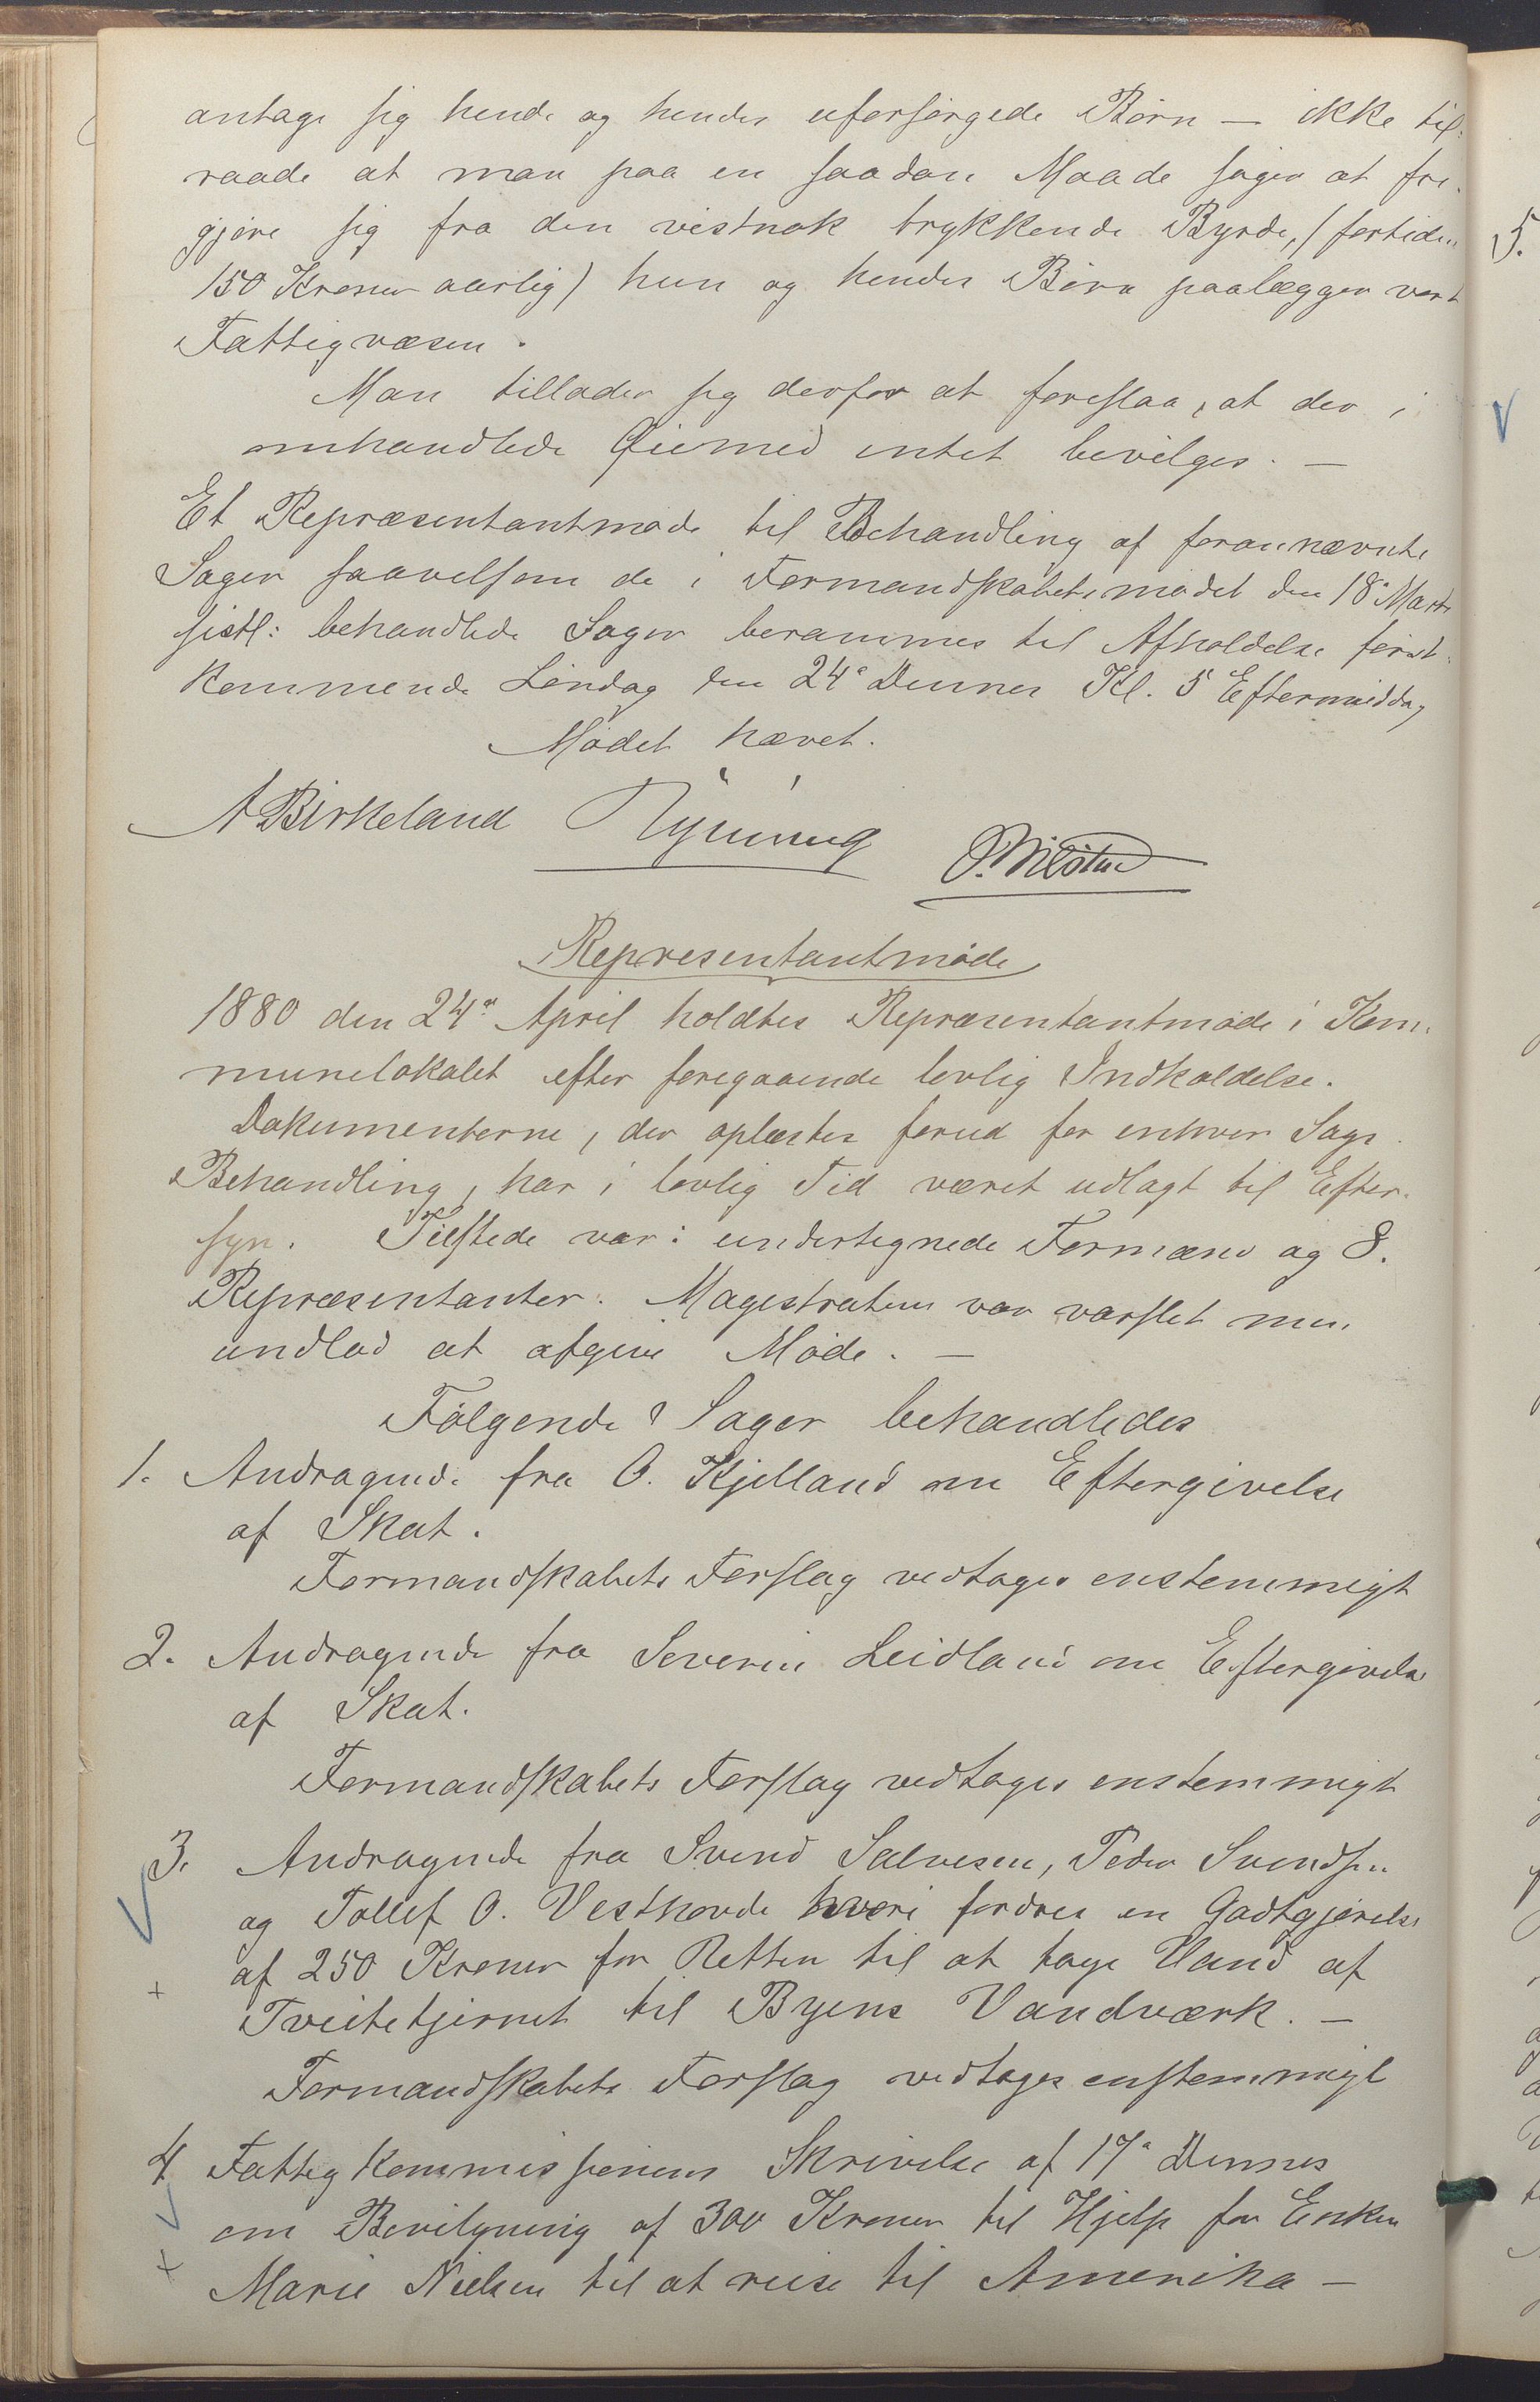 antage sig hende og hendes uforsørgede Børn — ikke til-
raade at man paa en saadan Maade søger at fri-
gjøre sig fra den vistnok trykkende Byrde, (fortiden
150 Kroner aarlig) hun og hendes Børn paalægger vort
Fattigvæsen.
Man tillader sig derfor at foreslaa, at der i
omhandlede Øiemed intet bevilges. —
Et Repræsentantmøde til Behandling af forannævnte
Sager saavelsom de i Formandskabetsmødet den 18de Marts
sistl: behandlede Sager berammes til Afholdelse først-
kommende Lørdag den 24de Dennes Kl. 5 Eftermiddag
Mødet hævet.
A Birkeland
Representantmøde
1880 den 24de April holdtes Repræsentantmøde i Kom-
munelokalet efter foregaaende lovlig Indkaldelse.
Dokumenterne, der oplæstes forud for enhver Sags
Behandling, har i lovlig Tid været udlagt til Efter-
syn. Tilstede var: undertegnede Formænd og 8.
Repræsentanter. Magistraten var varslet men
undlod at afgive Møde. —
Følgende Sager behandledes
1. Andragende fra O. Kjelland om Eftergivelse
af Skat.
Formandskabets Forslag vedtages enstemmigt
2. Andragende fra Severin Leidland om Eftergivelse
af Skat.
Formandskabets Forslag vedtages enstemmigt
3. Andragende fra Svend Salvesen, Peder Svendsen
og Tollef O. Vesthovde hvori fordres en Godtgjørelse
af 250 Kroner for Retten til at tage Vand af
Tveitetjernet til Byens Vandværk. —
Formandskabets Forslag vedtages enstemmigt
4. Fattigkommissionens Skrivelse af 17de Dennes
om Bevilgning af 300 Kroner til Hjelp for Enken
Marie Nielsen til at reise til Amerika —
5.